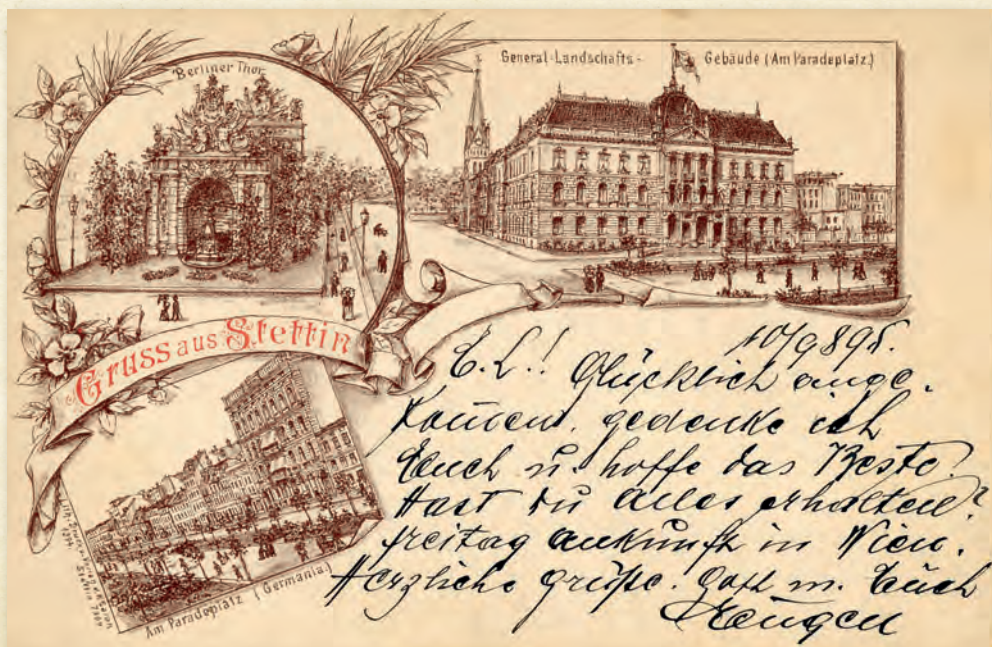 Berliner Thor.
General-Landschafts-Gebäude (Am Paradeplatz.)
Gruss aus Stettin
Am Paradeplatz (Germania.)
10/9 895.
E. L.! Glücklich ange-
kom̅en, gedenke ich
Euch u. hoffe das Beste.
Hast du alles erhalten?
Freitag Ankunft in Wien.
Herzliche Grüße. Gott m. Euch
Eugen